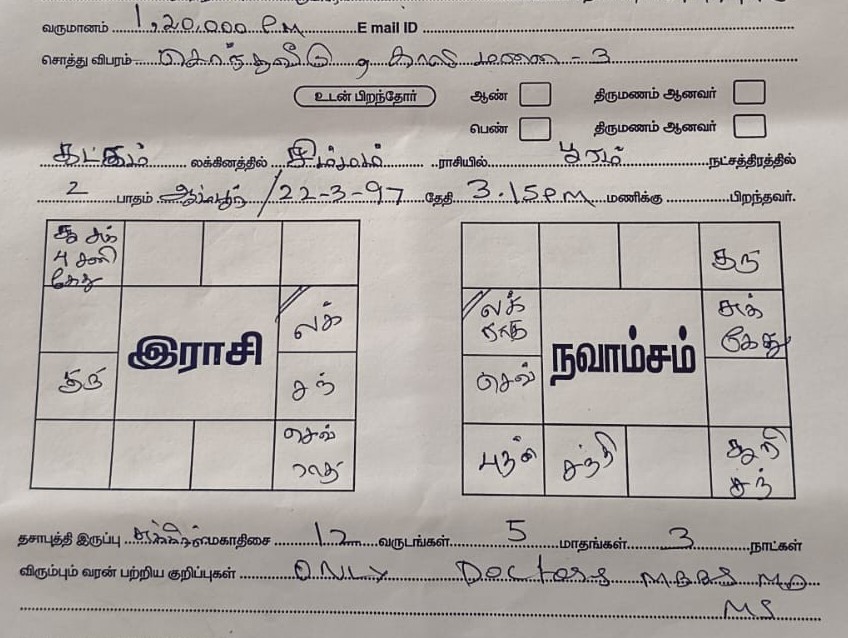 வருமானம் 1,20,000 P.M E mail ID
சொத்து விபரம் சொந்தவீடு, காலி மனை - 3
உடன் பிறந்தோர் ஆண் திருமணம் ஆனவர்
பெண் திருமணம் ஆனவர்
கடகம் லக்கினத்தில் சிம்மம் ராசியில் பூரம் நட்சத்திரத்தில்
2 பாதம் ஆம்பூர் / 22-3-97 தேதி 3.15 P.M மணிக்கு பிறந்தவர்.
கு
லக்
சுக்
லக்
கேது
இராசி
நவாம்சம்
கு
சந்
செவ்
செவ்
புதன்
சந்
தசாபுத்தி இருப்பு சுக்கிரன் மகாதிசை 12 வருடங்கள் 5 மாதங்கள் 3 நாட்கள்
விரும்பும் வரன் பற்றிய குறிப்புகள் ONLY Doctors MBBS MD
MS